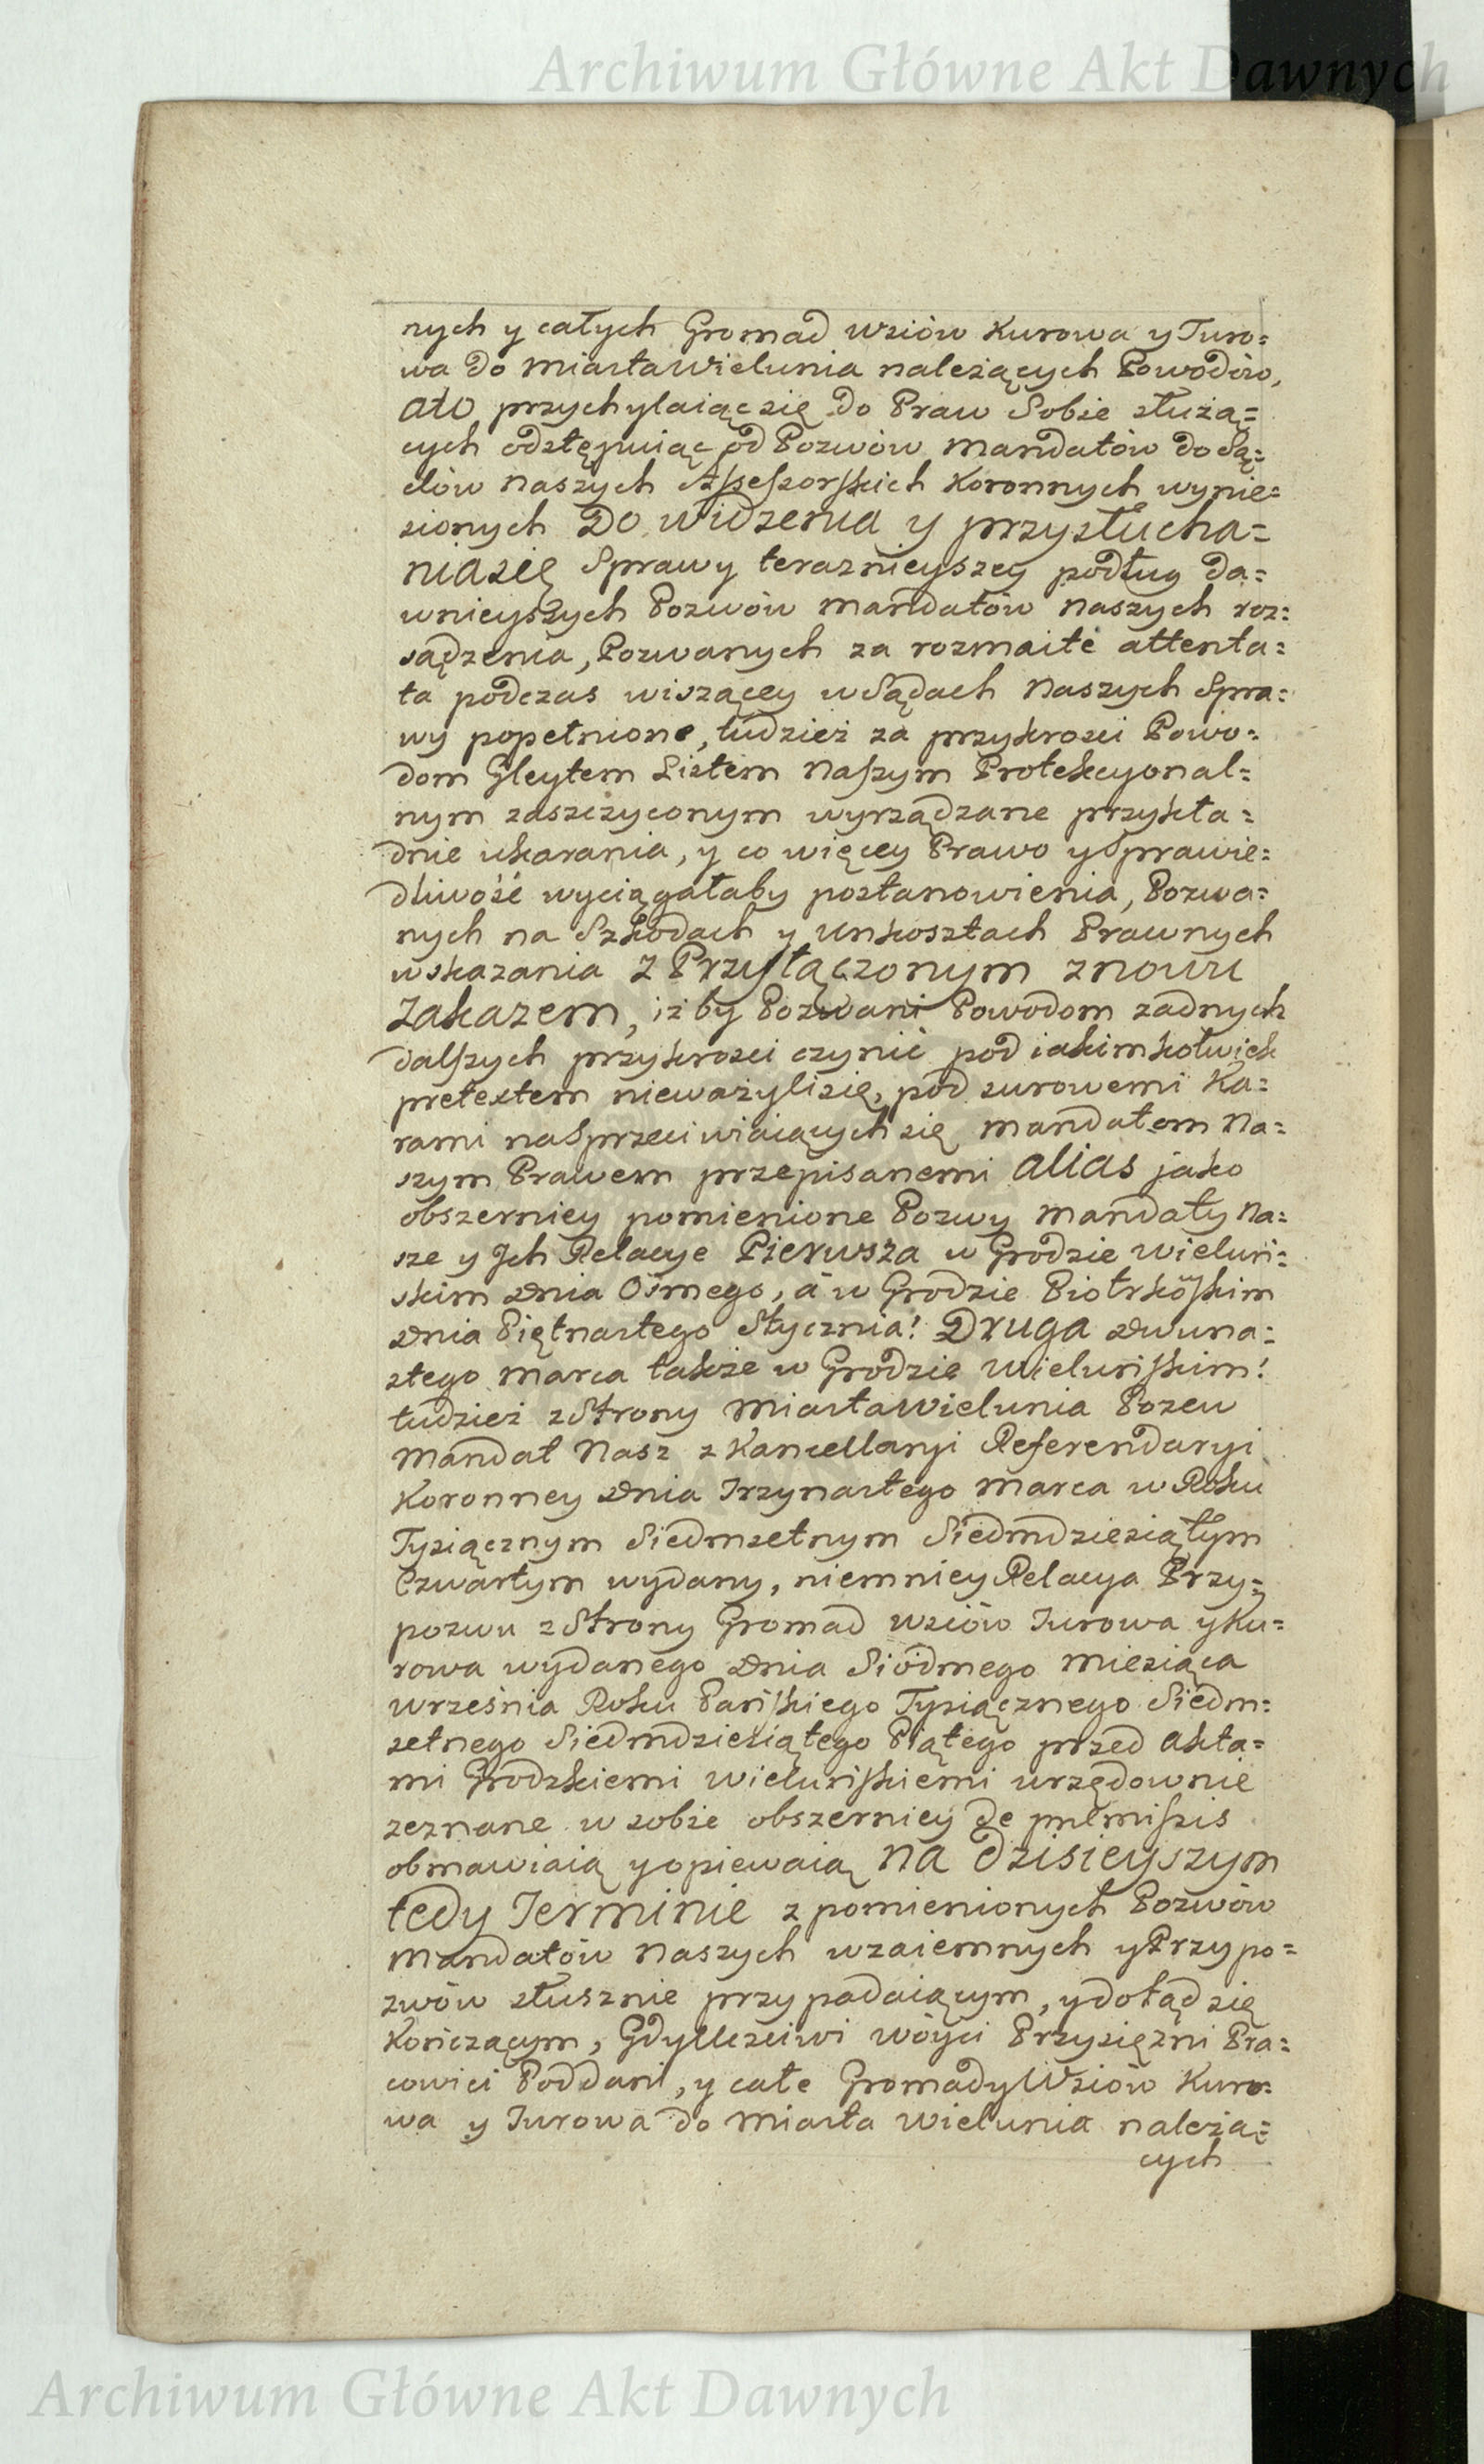 Archiwum Główne Akt Dawnych
nych y całych Gromad wsiów Kurowa y Turo=
wa do Miasta Wielunia należących Powodów,
ato przychylaiąc się do Praw Sobie służą=
cych odstępuiąc od Pozwów Mandatów do Są=
dów Naszych Assessorskich Koronnych wynie=
sionych Do widzenia y przysłucha=
nia się Sprawy terazńieyszey podług da=
wnieyszych Pozwów Mandatów Naszych roz=
sądzenia, Pozwanych za rozmaite attenta=
ta podczas wiszącey w Sądach Naszych Spra=
wy popełnione, tudzież za przykrości Powo=
dom Gleytem Listem Naszym Protekcyonal=
nym zaszczyconym wyrządzane przykła=
dnie ukarania, y co więcey Prawo y Sprawie=
dliwość wyciągałaby postanowienia, Pozwa=
nych na Szkodach y Unkosztach Prawnych
wskazania z Przyłączonym znowu
zakazem, iżby Pozwani Powodom zadnych
dalszych przykrości czynić pod iakimkolwiek
pretextem nieważyli się, pod surowemi Ka=
rami na Sprzeciwiaiących się Mandatom Na=
szym Prawem przepisanemi alias jako
obszerniey pomienione Pozwy Mandaty Na=
sze y Jch Relacye Pierwsza w Grodzie Wieluń=
skim Dnia Osmego, á w Grodzie Piotrkoskim
Dnia Piętnastego Stycznia! Druga Dwuna=
stego Marca także w Grodzie Wieluńskim!
tudzież z Strony Miasta Wielunia Pozew
Mandat Nasz z Kancellaryi Referendaryi
Koronney Dnia Trzynastego Marca w Roku
Tysiącznym Siedmsetnym Siedmdziesiątym
Czwartym wydany, niemniey Relacya Przy=
pozwu z Strony Gromad wsiów Turowa y Ku=
rowa wydanego Dnia Siodmego Miesiąca
Września Roku Pańskiego Tysiącznego Siedm=
setnego Siedmdziesiątego Piątego przed Akta=
mi Grodzkiemi Wieluńskiemi urzędownie
zeznane w sobie obszerniey de præmissis
obmawiaią y opiewaią Na Dzisieyszym
tedy Terminie z pomienionych Pozwów
Mandatów Naszych wzaiemnych y Przypo=
zwów słusznie przypadaiącym, y dotąd się
Kończącym, Gdy Uczciwi Wóyci Przysiężni Pra=
cowici Poddani, y całe Gromady Wsiów Kuro=
wa y Turowa do Miasta Wielunia należą=
cych
Archiwum Główne Akt Dawnych